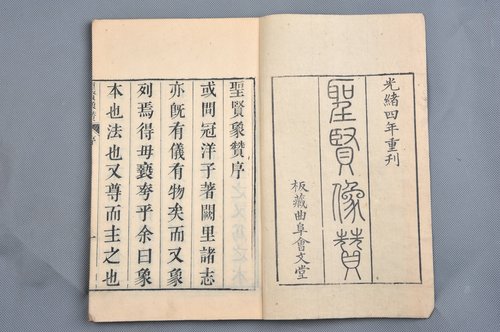 光緒四年重刊
聖賢像贊
板藏曲阜會文堂
聖賢象贊序
或問冠洋子著闕里諸志
亦旣有儀有物矣而又象
列焉得毋褻夸乎余曰象
本也法也又尊而主之也
序
一